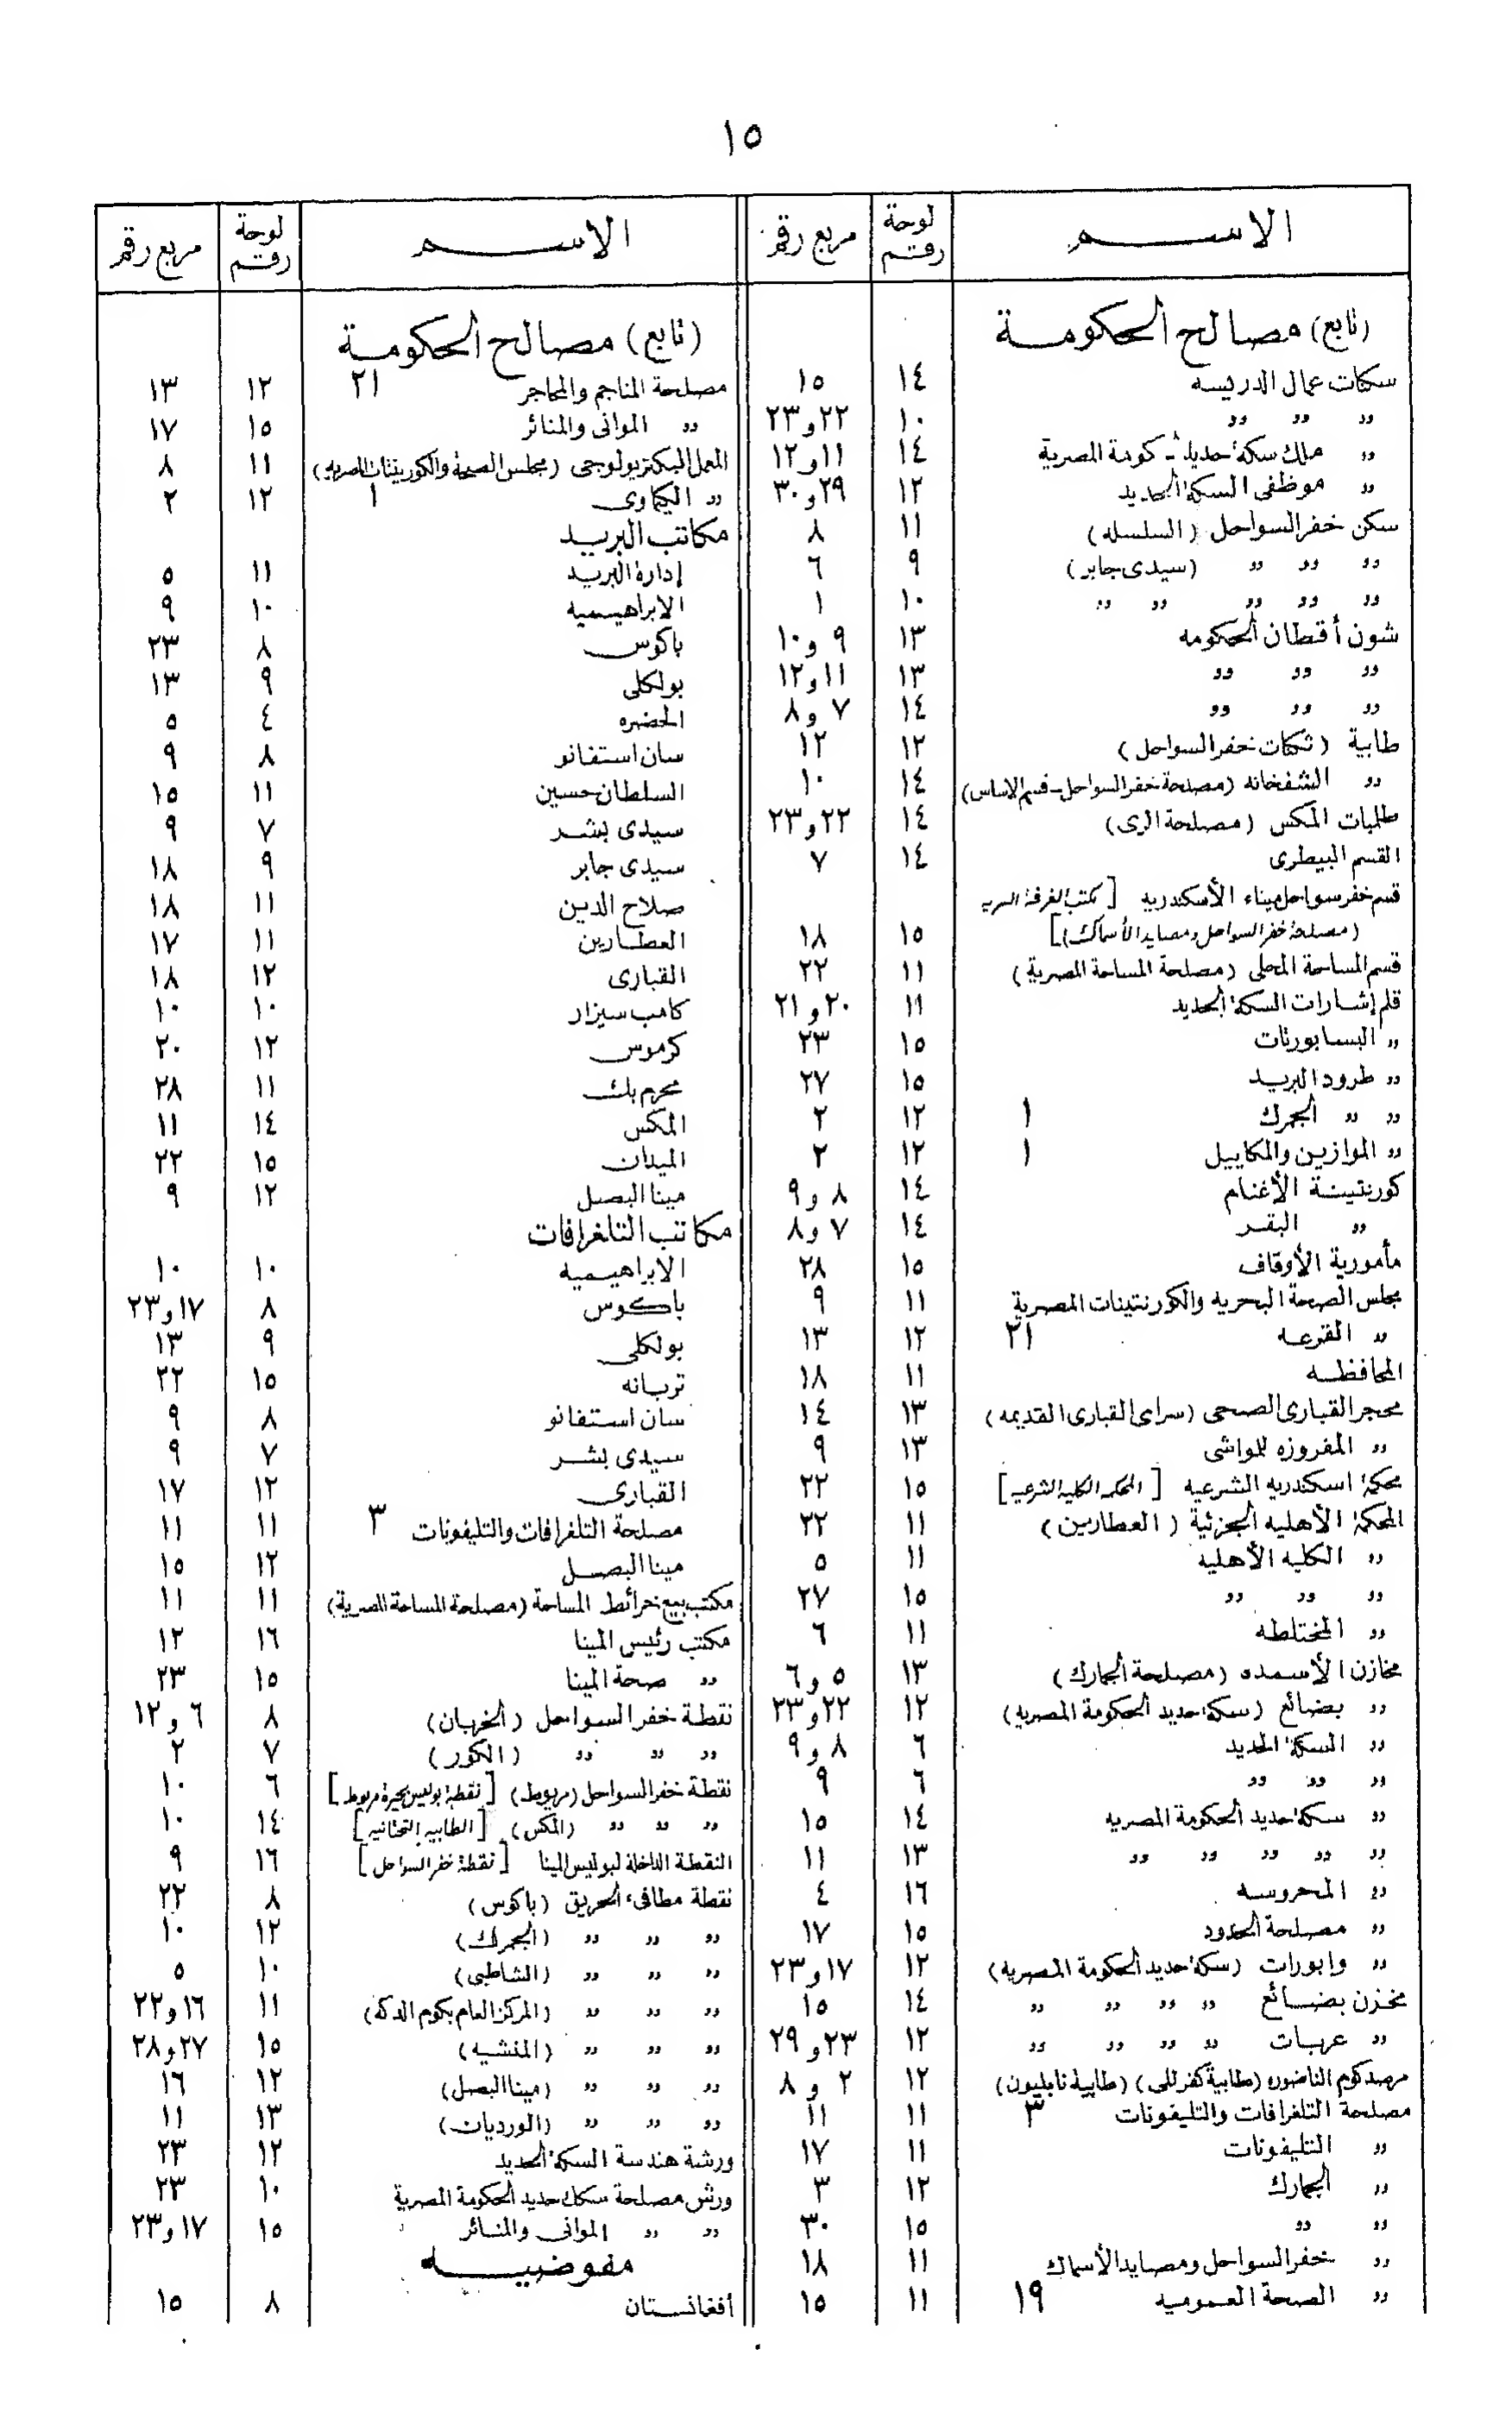 ١٥
الاسم لوحة رقم مربع رقم
(تابع) مصالح الحكومة
سكنات عمال الدريسه ١٤ ١٥
„ „ „ ١٠ ٢٢ و ٢٣
„ ملك سكة حديد الحكومة المصرية ١٤ ١١ و ١٢
„ موظفى السكة الحديد ١٢ ٢٩ و ٣٠
سكن خفر السواحل (السلسله) ١١ ٨
„ „ „ (سيدى جابر) ٩ ٦
„ „ „ „ „ ١٠ ١
شون أقطان الحكومه ١٣ ٩ و ١٠
„ „ „ ١٣ ١١ و ١٢
„ „ „ ١٤ ٧ و ٨
طابية (ثكنات خفر السواحل) ١٢ ١٢
„ الشفخانه (مصلحة خفر السواحل - قسم الاساس) ١٤ ١٠
طلمبات المكس (مصلحة الرى) ١٤ ٢٢ و ٢٣
القسم البيطرى ١٤ ٧
قسم خفر سواحل ميناء الأسكندرية [مكتب الغرفة السريه
(مصلحة خفر السواحل ومصايد الأسماك)] ١٥ ١٨
قسم المساحة المحلى (مصلحة المساحة المصرية) ١١ ٢٢
قلم إشارات السكة الحديد ١١ ٢٠ و ٢١
„ البسابورتات ١٥ ٢٣
„ طرود البريد ١٥ ٢٧
„ „ الجمرك ١ ١٢ ٢
„ الموازين والمكاييل ١ ١٢ ٢
كورنتينة الأغنام ١٤ ٨ و ٩
„ البقر ١٤ ٧ و ٨
مأمورية الأوقاف ١٥ ٢٨
مجلس الصحة البحريه والكورنتينات المصرية ١١ ٩
„ القرعه ٢١ ١٢ ١٣
المحافظه ١١ ١٨
محجر القبارى الصحى (سراى القبارى القديمه) ١٣ ١٤
„ المفروزه للمواشى ١٣ ٩
محكمة اسكندريه الشرعيه [المحكمه الكلية الشرعيه] ١٥ ٢٢
المحكمة الأهليه الجزئية (العطارين) ١١ ٢٢
„ الكليه الأهليه ١١ ٥
„ „ „ ١٥ ٢٧
„ المختلطه ١١ ٦
مخازن الأسمده (مصلحة الجمارك) ١٣ ٥ و ٦
„ بضائع (سكة حديد الحكومة المصريه) ١٢ ٢٢ و ٢٣
„ السكة الحديد ٦ ٨ و ٩
„ „ „ ٦ ٩
„ سكة حديد الحكومة المصريه ١٤ ١٥
„ „ „ „ „ ١٣ ١١
„ المحروسه ١٦ ٤
„ مصلحة الحدود ١٥ ١٧
„ وابورات (سكة حديد الحكومة المصريه) ١٢ ١٧ و ٢٣
مخزن بضائع „ „ „ „ ١٤ ١٥
„ عربات „ „ „ „ ١٢ ٢٣ و ٢٩
مرصد كوم الناضوره (طابية كفرللى) (طابية نابليون) ١٢ ٢ و ٨
مصلحة التلغرافات والتليفونات ٣ ١١ ١١
„ التليفونات ١١ ١٧
„ الجمارك ١٢ ٣
„ „ ١٥ ٣٠
„ خفر السواحل ومصايد الأسماك ١١ ١٨
„ الصحة العموميه ١٩ ١١ ١٥
الاسم لوحة رقم مربع رقم
(تابع) مصالح الحكومة
مصلحة المناجم والمحاجر ٢١ ١٢ ١٣
„ الموانى والمنائر ١٥ ١٧
المعمل البكتريولوجى (مجلس الصحة والكورنتينات المصريه) ١١ ٨
„ الكيماوى ١ ١٢ ٢
مكاتب البريد
إدارة البريد ١١ ٥
الابراهيميه ١٠ ٩
باكوس ٨ ٢٣
بولكلى ٩ ١٣
الحضره ٤ ٥
سان استفانو ٨ ٩
السلطان حسين ١١ ١٥
سيدى بشر ٧ ٩
سيدى جابر ٩ ١٨
صلاح الدين ١١ ١٨
العطارين ١١ ١٧
القبارى ١٢ ١٨
كامب سيزار ١٠ ١٠
كرموس ١٢ ٢٠
محرم بك ١١ ٢٨
المكس ١٤ ١١
الميدان ١٥ ٢٢
مينا البصل ١٢ ٩
مكاتب التلغرافات
الابراهيميه ١٠ ١٠
باكوس ٨ ١٧ و ٢٣
بولكلى ٩ ١٣
تربانه ١٥ ٢٢
سان استفانو ٨ ٩
سيدى بشر ٧ ٩
القبارى ١٢ ١٧
مصلحة التلغرافات والتليفونات ٣ ١١ ١١
مينا البصل ١٢ ١٥
مكتب بيع خرائط المساحة (مصلحة المساحة المصرية) ١١ ١١
مكتب رئيس المينا ١٦ ١٢
„ صحة المينا ١٥ ٢٣
نقطة خفر السواحل (الخربان) ٨ ٦ و ١٢
„ „ „ (الكور) ٧ ٢
نقطة خفر السواحل (مريوط) [نقطة بوليس بحيرة مريوط] ٦ ١٠
„ „ „ (المكس) [الطابيه التحتانيه] ١٤ ١٠
النقطة الداخلة لبوليس المينا [نقطة خفر السواحل] ١٦ ٩
نقطة مطافىء الحريق (باكوس) ٨ ٢٢
„ „ „ (الجمرك) ١٢ ١٠
„ „ „ (الشاطبى) ١٠ ٥
„ „ „ (المركز العام بكوم الدكة) ١١ ١٦ و ٢٢
„ „ „ (المنشيه) ١٥ ٢٧ و ٢٨
„ „ „ (مينا البصل) ١٢ ١٦
„ „ „ (الورديان) ١٣ ١١
ورشة هندسة السكة الحديد ١٢ ٢٣
ورش مصلحة سكك حديد الحكومة المصرية ١٠ ٢٣
„ „ الموانى والمنائر ١٥ ١٧ و ٢٣
مفوضيه
أفغانستان ٨ ١٥